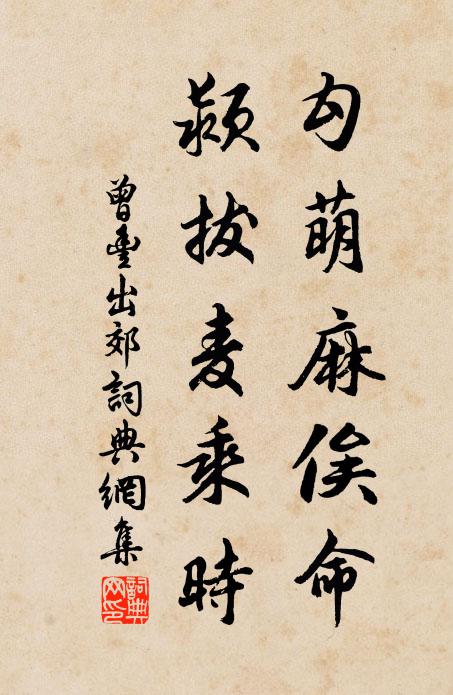 勾萌麻俟命
颖拔麦乘時
曾豐出郊詞典網集
詞典網印